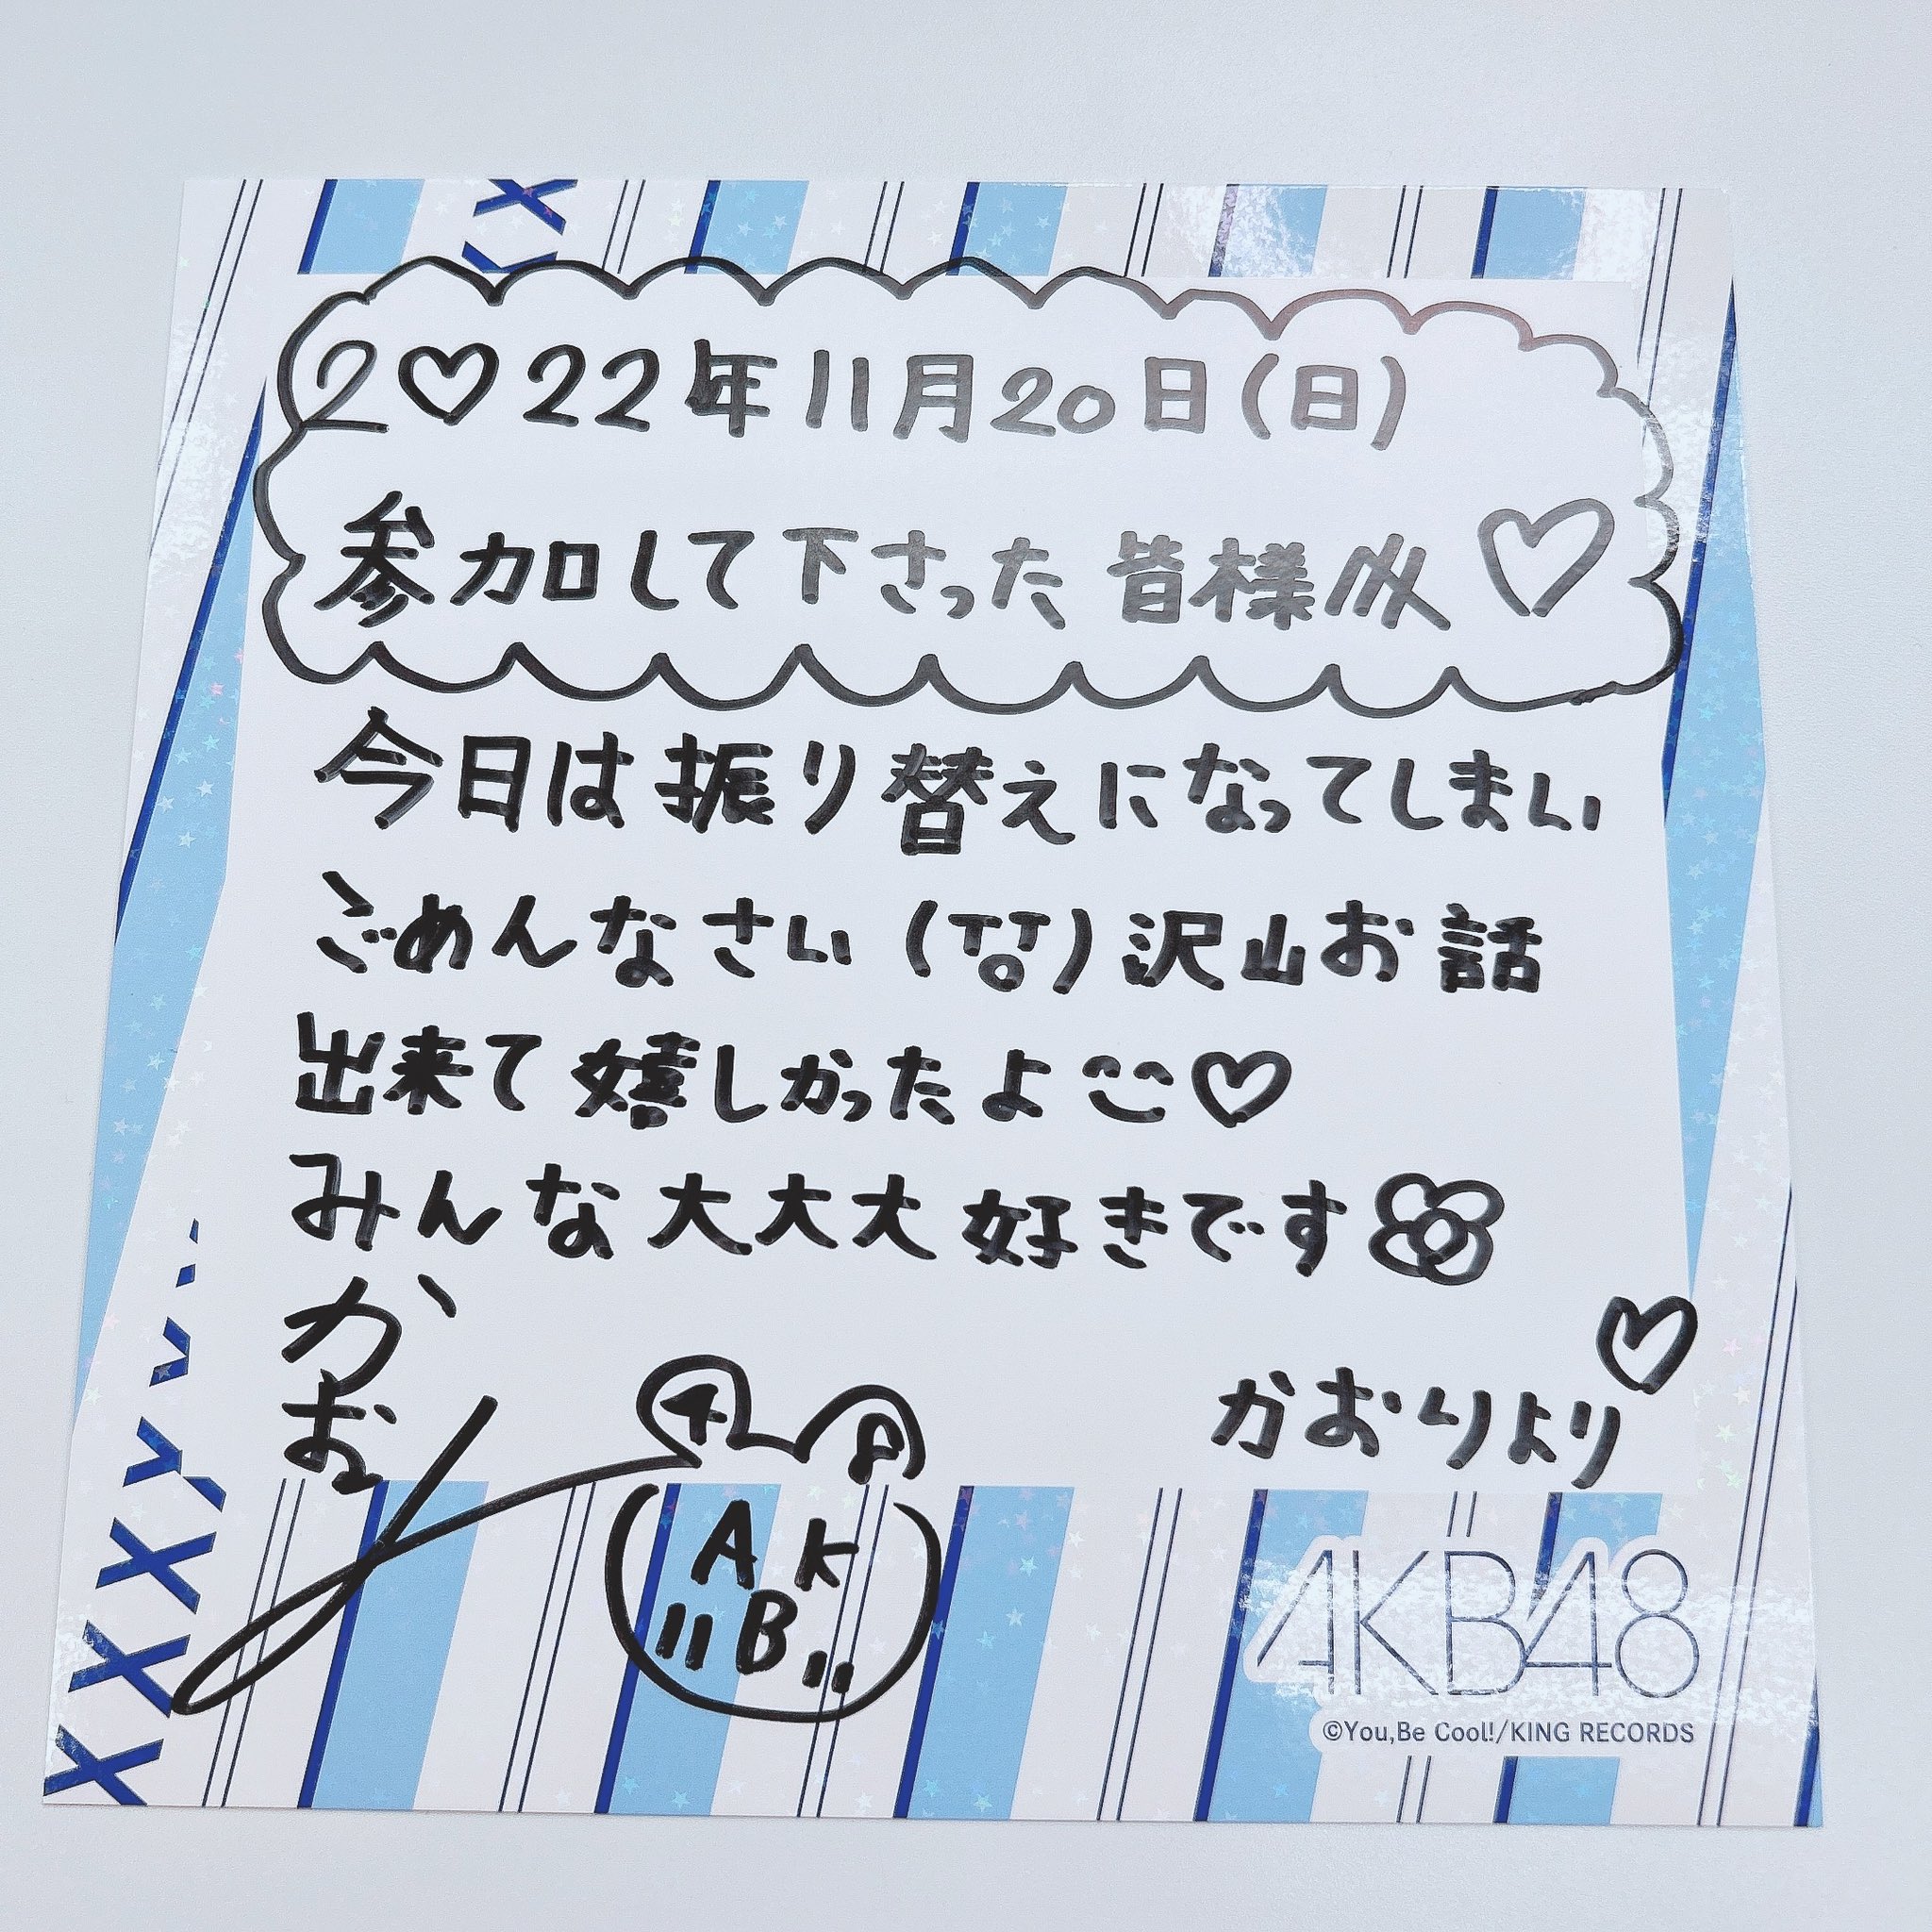 2♡22年11月20日(日)
参加して下さった皆様へ♡
今日は振り替えになってしまい
ごめんなさい(TT)沢山お話
出来て嬉しかったよ♡
みんな大大大好きです
かおりより♡
かおり
48
AKB
AKB48
©You,Be Cool!/KING RECORDS